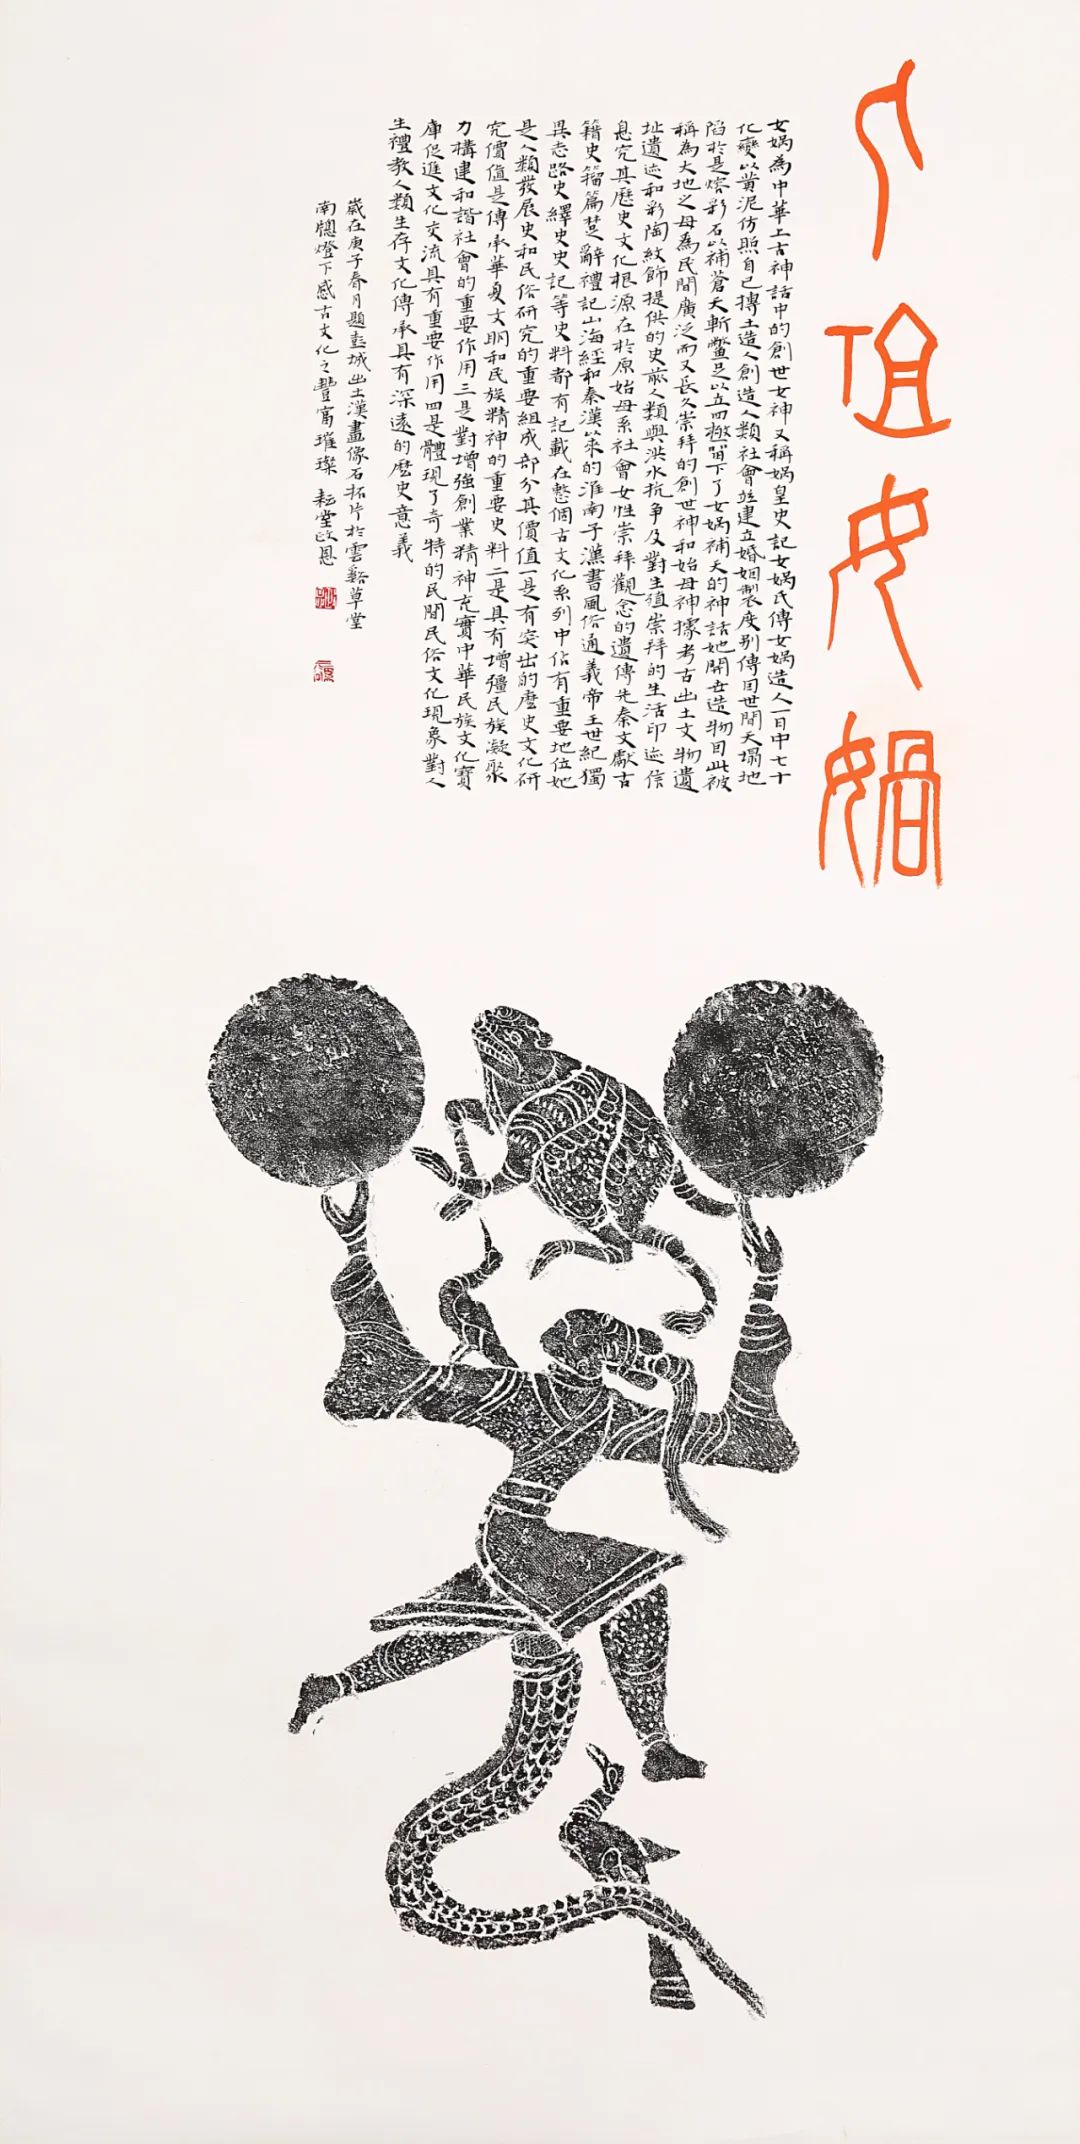 人祖女媧
女媧為中華上古神話中的創世女神又稱媧皇史記女媧氏傳女媧造人一日中七十
化變以黃泥仿照自己摶土造人創造人類社會並建立婚姻製度别傳因世間天塌地
陷於是熔彩石以補蒼天斬鱉足以立四極留下了女媧補天的神話她開世造物因此被
稱為大地之母為民間廣泛而又長久崇拜的創世神和始母神據考古出土文物遺
址遺迹和彩陶紋飾提供的史前人類與洪水抗争及對生殖崇拜的生活印迹信
息究其歷史文化根源在於原始母系社會女性崇拜觀念的遺傳先秦文獻古
籍史籀篇楚辭禮記山海經和秦漢以來的淮南子漢書風俗通義帝王世紀獨
異志路史繹史史記等史料都有記載在整個古文化系列中佔有重要地位她
是人類發展史和民俗研究的重要組成部分其價值一是有突出的歷史文化研
究價值是傳承華夏文明和民族精神的重要史料二是具有增彊民族凝聚
力構建和諧社會的重要作用三是對增強創業精神充實中華民族文化寶
庫促進文化交流具有重要作用四是體現了奇特的民間民俗文化現象對人
生禮教人類生存文化傳承具有深遠的歷史意義
歲在庚子春月題彭城出土漢畫像石拓片於雲谿草堂
南牕燈下感古文化之豐富璀璨 耘堂啟恩